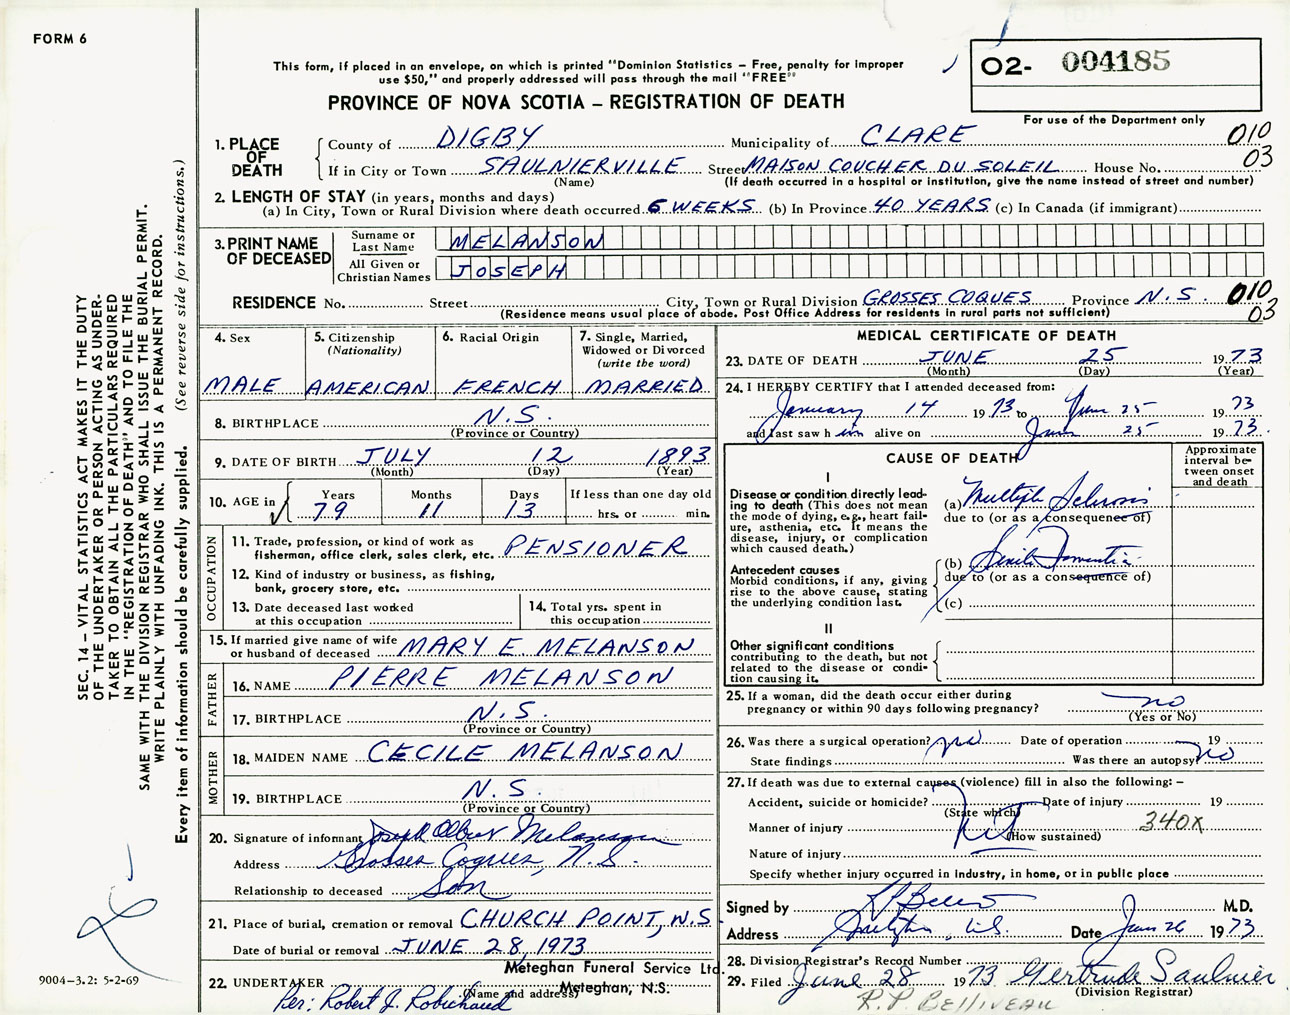 FORM 6
This form, if placed in an envelope, on which is printed "Dominion Statistics – Free, penalty for improper
use $50," and properly addressed will pass through the mail "FREE"
PROVINCE OF NOVA SCOTIA – REGISTRATION OF DEATH
O2- 004185
For use of the Department only
1. PLACE OF DEATH
County of DIGBY Municipality of CLARE 010
If in City or Town SAULNIERVILLE Street MAISON COUCHER DU SOLEIL House No. 03
(Name) (If death occurred in a hospital or institution, give the name instead of street and number)
2. LENGTH OF STAY (in years, months and days)
(a) In City, Town or Rural Division where death occurred 6 WEEKS (b) In Province 40 YEARS (c) In Canada (if immigrant)
3. PRINT NAME OF DECEASED
Surname or Last Name MELANSON
All Given or Christian Names JOSEPH
RESIDENCE No. Street City, Town or Rural Division GROSSES COQUES Province N.S. 010
(Residence means usual place of abode. Post Office Address for residents in rural parts not sufficient) 03
4. Sex
MALE
5. Citizenship
(Nationality)
AMERICAN
6. Racial Origin
FRENCH
7. Single, Married,
Widowed or Divorced
(write the word)
MARRIED
8. BIRTHPLACE N.S.
(Province or Country)
9. DATE OF BIRTH JULY 12 1893
(Month) (Day) (Year)
10. AGE in
Years Months Days If less than one day old
79 11 13 hrs. or min.
OCCUPATION
11. Trade, profession, or kind of work as
fisherman, office clerk, sales clerk, etc. PENSIONER
12. Kind of industry or business, as fishing,
bank, grocery store, etc.
13. Date deceased last worked
at this occupation
14. Total yrs. spent in
this occupation
15. If married give name of wife
or husband of deceased MARY E. MELANSON
FATHER
16. NAME PIERRE MELANSON
17. BIRTHPLACE N.S.
(Province or Country)
MOTHER
18. MAIDEN NAME CECILE MELANSON
19. BIRTHPLACE N.S.
(Province or Country)
20. Signature of informant Joseph Albert Melanson
Address Grosses Coques, N.S.
Relationship to deceased Son
21. Place of burial, cremation or removal CHURCH POINT, N.S
Date of burial or removal JUNE 28, 1973
22. UNDERTAKER Meteghan Funeral Service Ltd.
(Name and address) Meteghan, N.S.
Per: Robert J. Robichaud
MEDICAL CERTIFICATE OF DEATH
23. DATE OF DEATH JUNE 25 1973
(Month) (Day) (Year)
24. I HEREBY CERTIFY that I attended deceased from:
January 14 1973 to June 25 1973
and last saw h im alive on June 25 1973.
CAUSE OF DEATH
Approximate
interval be-
tween onset
and death
I
Disease or condition directly lead-
ing to death (This does not mean
the mode of dying, e.g., heart fail-
ure, asthenia, etc. It means the
disease, injury, or complication
which caused death.)
(a) Multiple Sclerosis
due to (or as a consequence of)
Antecedent causes
Morbid conditions, if any, giving
rise to the above cause, stating
the underlying condition last.
(b) Senile Dementia
due to (or as a consequence of)
(c)
II
Other significant conditions
contributing to the death, but not
related to the disease or condi-
tion causing it.
25. If a woman, did the death occur either during
pregnancy or within 90 days following pregnancy? no
(Yes or No)
26. Was there a surgical operation? no Date of operation 19
State findings Was there an autopsy? no
27. If death was due to external causes (violence) fill in also the following: –
Accident, suicide or homicide? Date of injury 19
(State which)
Manner of injury 340X
(How sustained)
Nature of injury
Specify whether injury occurred in industry, in home, or in public place
Signed by M.D.
Address Date June 26 1973
28. Division Registrar's Record Number
29. Filed June 28 1973 Gertrude Saulnier
(Division Registrar)
R.P. BELLIVEAU
SEC. 14 – VITAL STATISTICS ACT MAKES IT THE DUTY
OF THE UNDERTAKER OR PERSON ACTING AS UNDER-
TAKER TO OBTAIN ALL THE PARTICULARS REQUIRED
IN THE "REGISTRATION OF DEATH" AND TO FILE THE
SAME WITH THE DIVISION REGISTRAR WHO SHALL ISSUE THE BURIAL PERMIT.
WRITE PLAINLY WITH UNFADING INK. THIS IS A PERMANENT RECORD.
Every item of information should be carefully supplied. (See reverse side for instructions.)
9004–3.2: 5-2-69